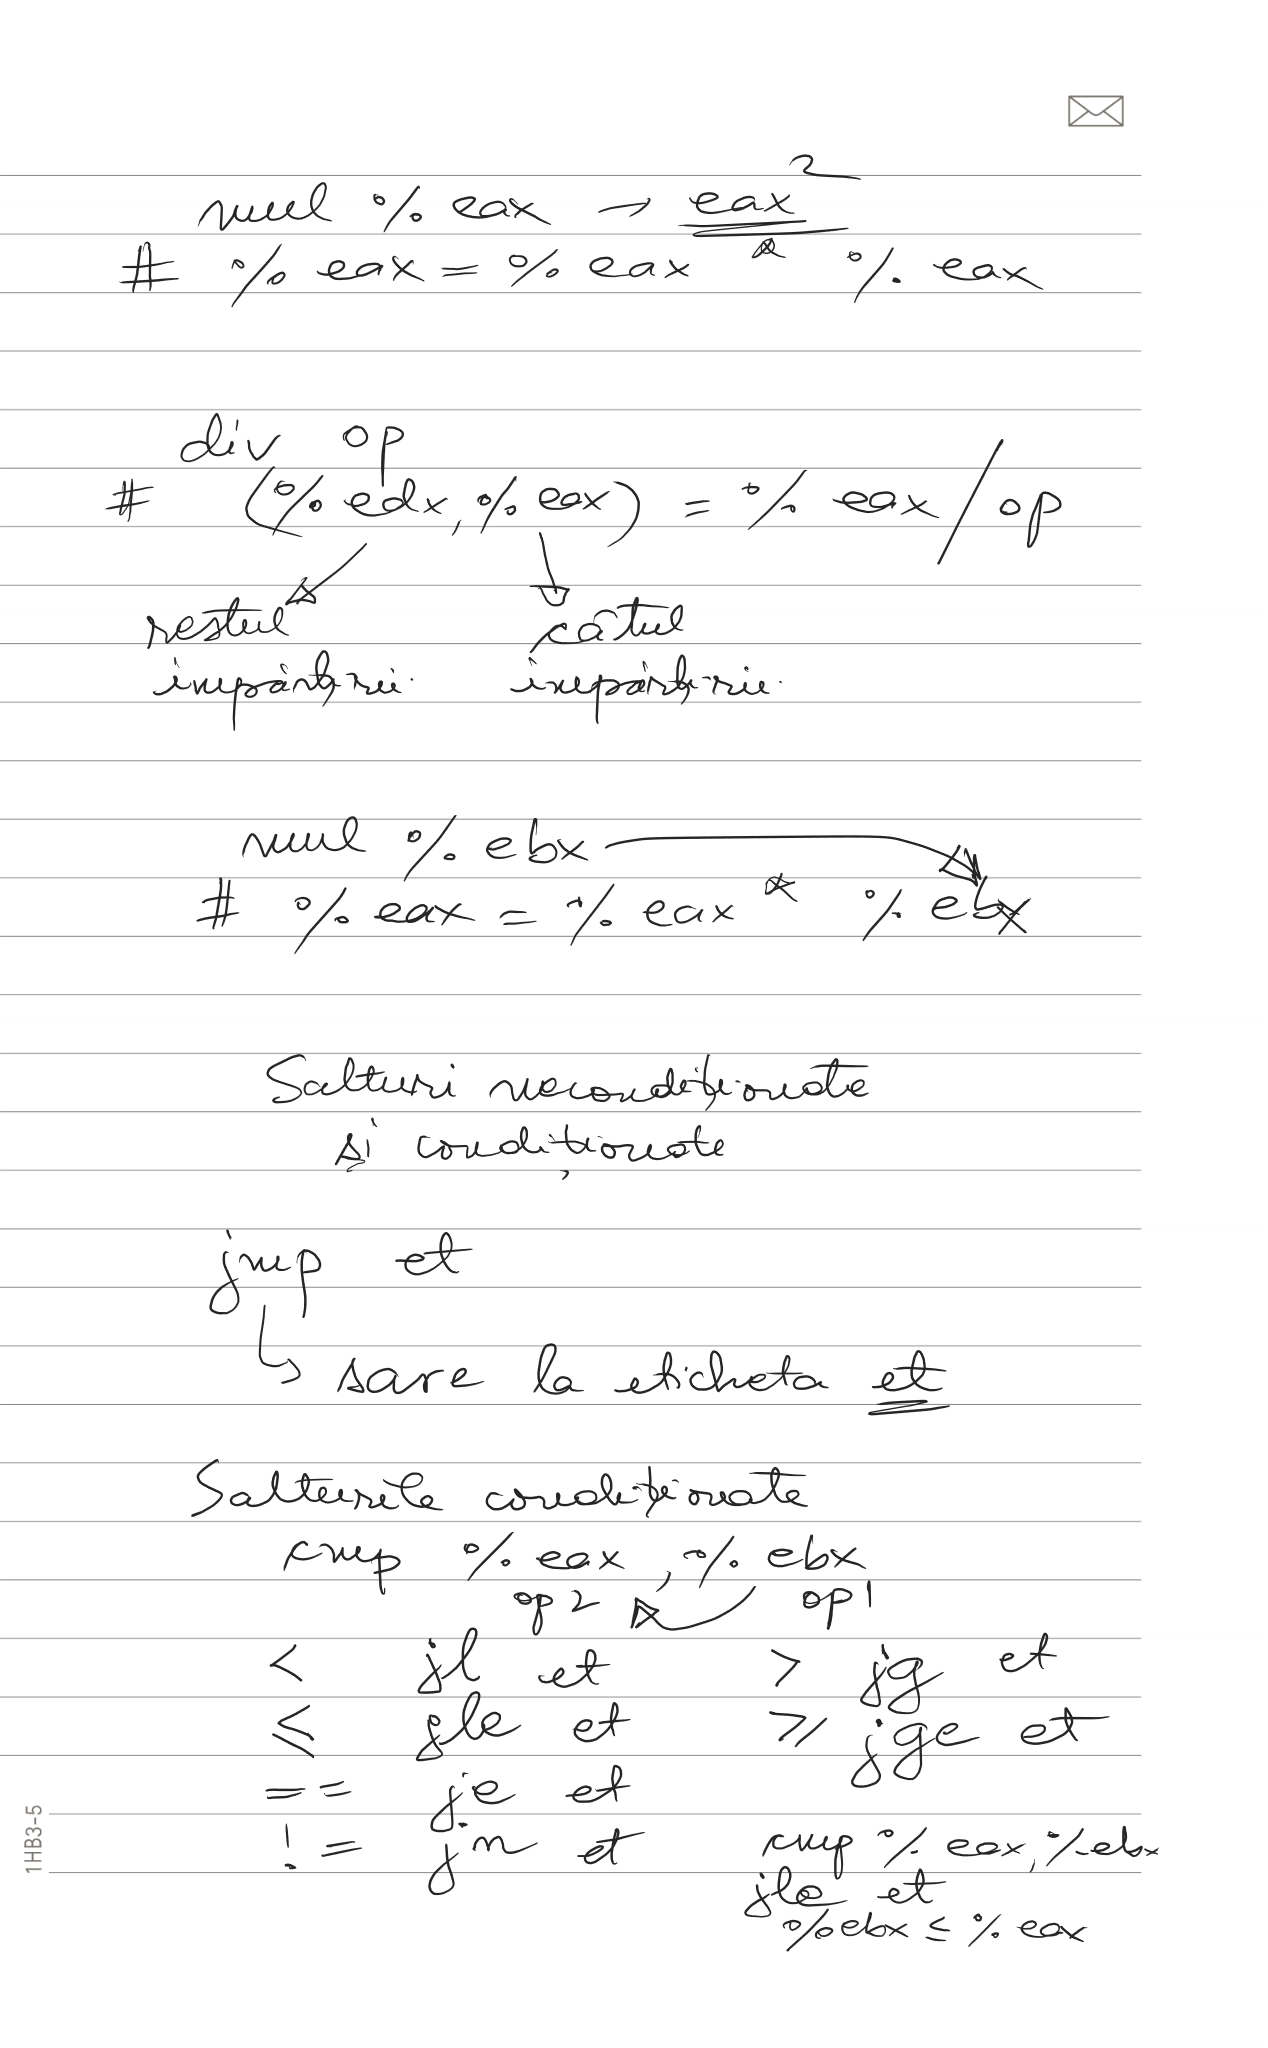 mul % eax → eax²
# % eax = % eax * % eax
div op
# (% edx, % eax) = % eax / op
restul câtul
împărțirii. împărțirii.
mul % ebx
# % eax = % eax * % ebx
Salturi necondiționate
și condiționate
jmp et
↳ sare la eticheta et
Salturile condiționate
cmp % eax, % ebx
op2 op1
< jl et > jg et
≤ jle et ≥ jge et
== je et
!= jn et cmp % eax, % ebx
jle et
% ebx ≤ % eax
1HB3-5